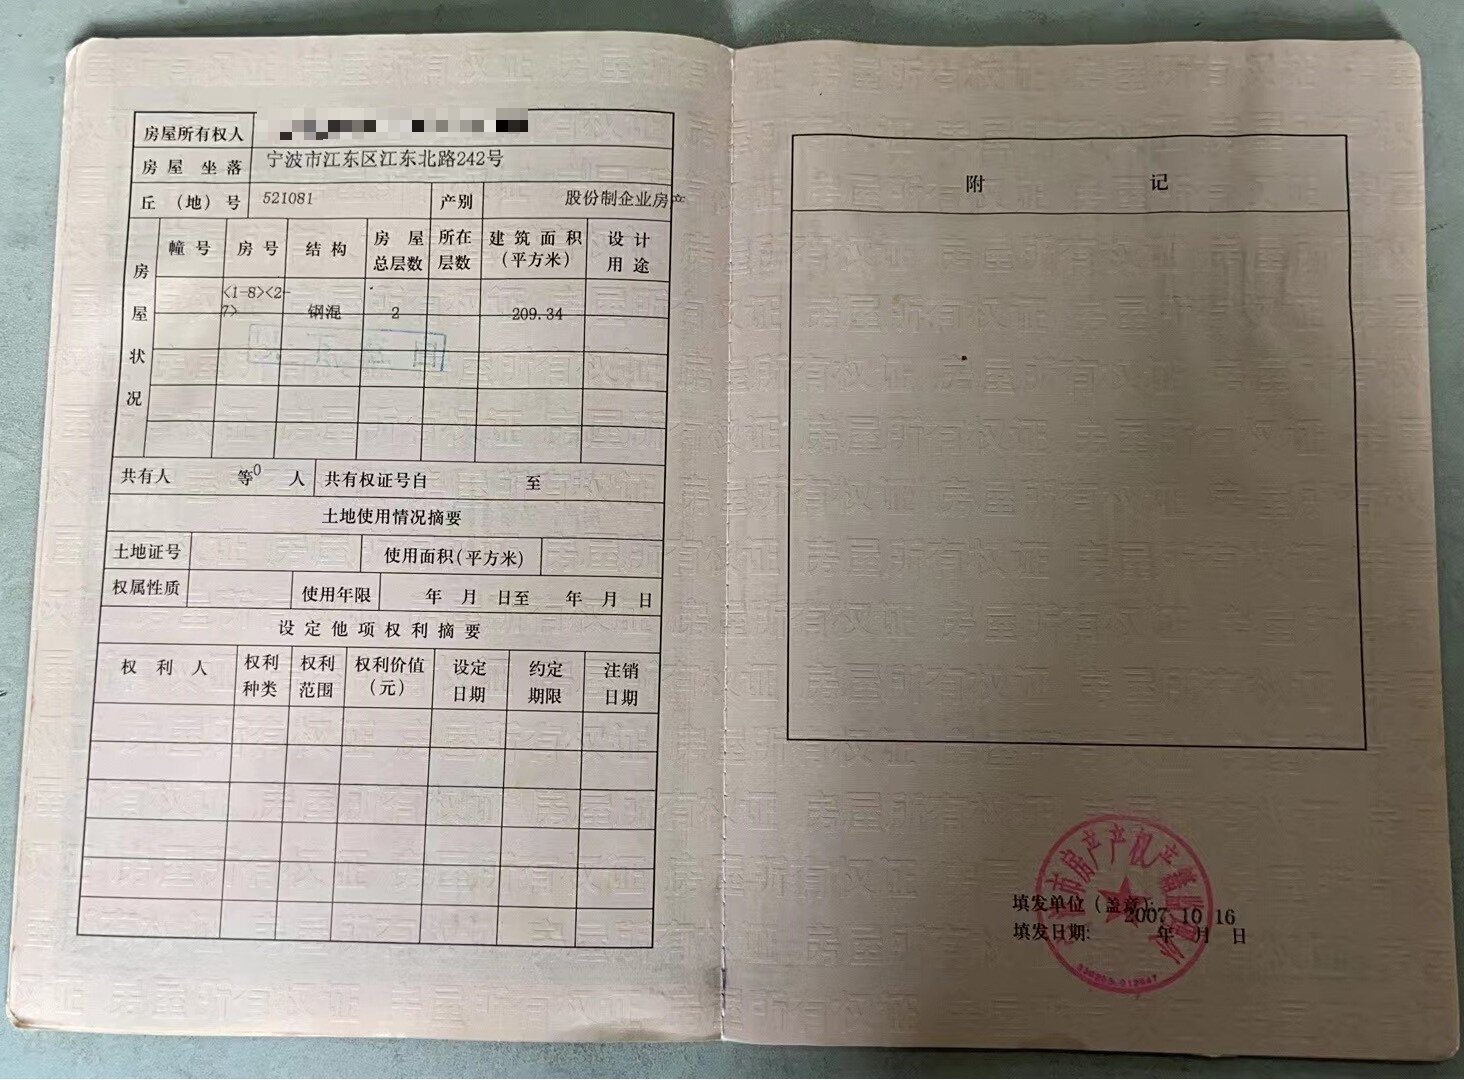 房屋所有权人
房屋坐落 宁波市江东区江东北路242号
丘（地）号 521081 产别 股份制企业房产
房屋状况
幢号 房号 结构 房屋总层数 所在层数 建筑面积（平方米） 设计用途
<1-8><2-7> 钢混 2 209.34
以下空白
共有人 等0人 共有权证号自 至
土地使用情况摘要
土地证号 使用面积(平方米)
权属性质 使用年限 年 月 日至 年 月 日
设定他项权利摘要
权利人 权利种类 权利范围 权利价值（元） 设定日期 约定期限 注销日期
附 记
市房产产权产籍监理
填发单位（盖章）：
2007 10 16
填发日期: 年 月 日